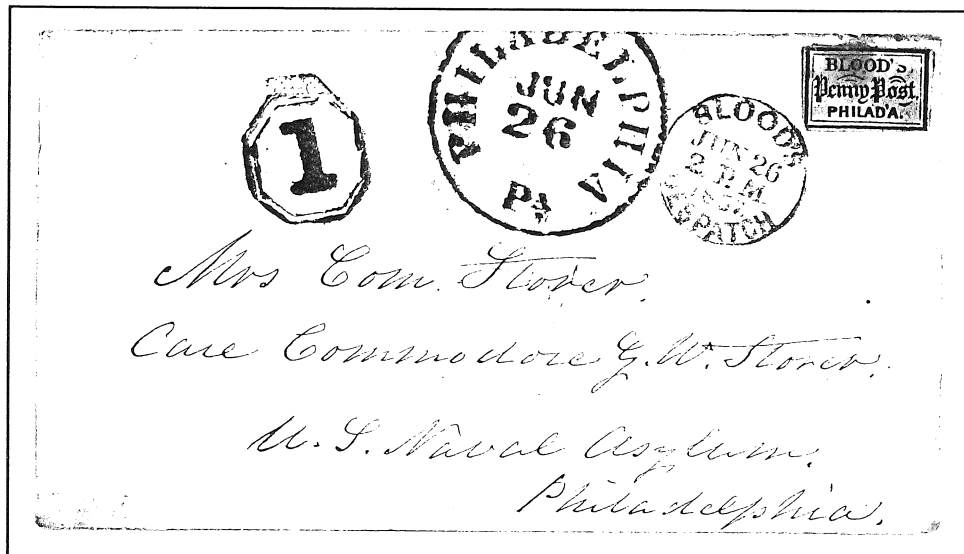 1
PHILADELPHIA
JUN
26
Pa
BLOOD'S
JUN 26
2 P.M.
DESPATCH
BLOOD'S
Penny Post.
PHILAD'A.
Mrs Com. Storer.
Care Commodore G. W. Storer.
U. S. Naval Asylum.
Philadelphia.